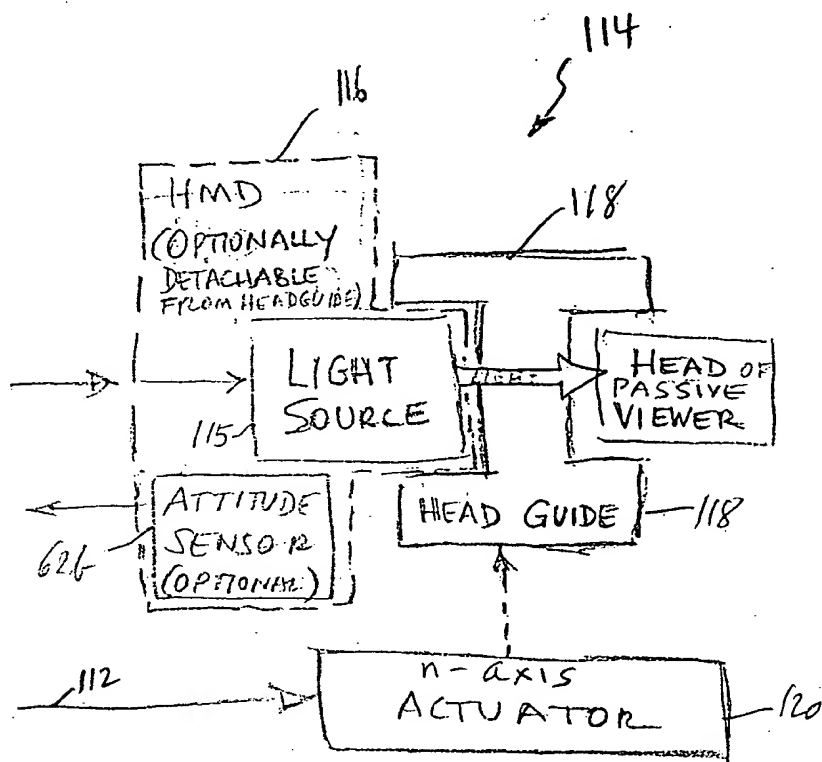 114
116
HMD
(OPTIONALLY
DETACHABLE
FROM HEADGUIDE)
118
LIGHT
SOURCE
115
LIGHT
HEAD OF
PASSIVE
VIEWER
ATTITUDE
SENSOR
(OPTIONAL)
62b
HEAD GUIDE
118
112
n-axis
ACTUATOR
120